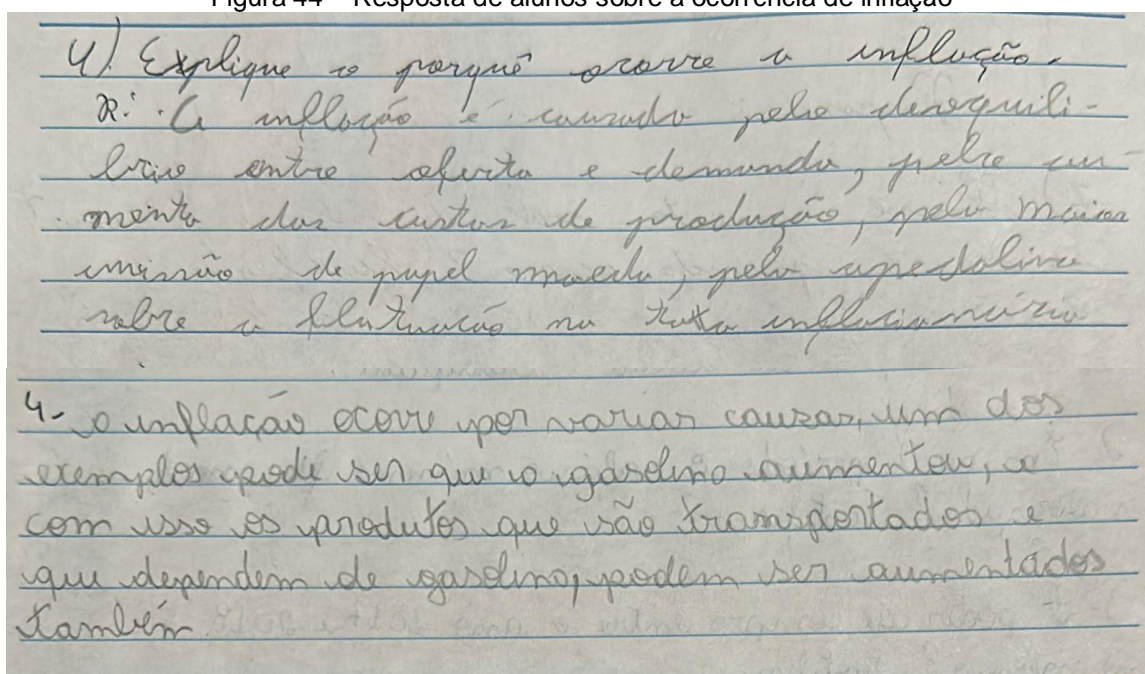 Figura 44 – Resposta de alunos sobre a ocorrência de inflação
4) Explique o porquê ocorre a inflação.
R: A inflação é causada pelo desequilí-
brio entre oferta e demanda, pelo au-
mento dos custos de produção, pela maior
emissão de papel moeda, pela
sobre a flutuação na taxa inflacionária
4- a inflação ocorre por varias causas, um dos
exemplos pode ser que a gasolina aumentou, e
com isso os produtos que são transportados e
que dependem de gasolina, podem ser aumentados
também